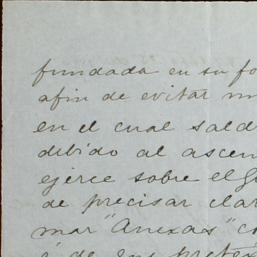 fundada en su fo
afin de evitar
en el cual sald
debido al ascen
ejerce sobre el G
de precisar clar
mar "Anexas" co
é de sus pretex